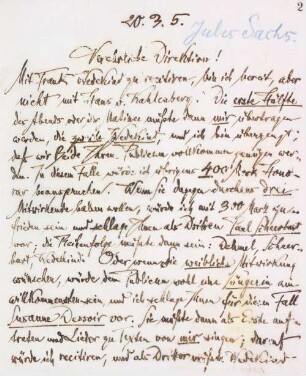 2
20. 3. 5.
Jules Sachs.
Verehrliche Direktion!
Mit Frank Wedekind zu recitiren, bin ich bereit, aber
nicht mit Hans v. Kahlenberg. Die erste Hälfte
des Abends oder der Matinée müßte dann mir übertragen
werden, die zweite Wedekind, und ich bin überzeugt,
daß wir Beide Ihrem Publicum vollkommen genügen wer-
den. In diesem Falle würde ich übrigens 400 Mark Hono-
rar beanspruchen. Wenn Sie dagegen durchaus drei
Mitwirkende haben wollen, würde ich mit 300 Mark zu-
frieden sein und schlage Ihnen als Dritten Paul Scheerbart
vor; die Reihenfolge müßte dann sein: Dehmel, Scheer-
bart, Wedekind. Oder wenn Sie weibliche Mitwirkung
wünschen, würde dem Publicum wohl eine Sängerin am
willkommensten sein, und ich schlage Ihnen für diesen Fall
Susanne Dessoir vor. Sie müßte dann als Erste auf-
treten und Lieder zu Texten von mir singen; darauf
würde ich recitiren, und als Dritter müßte Wedekind